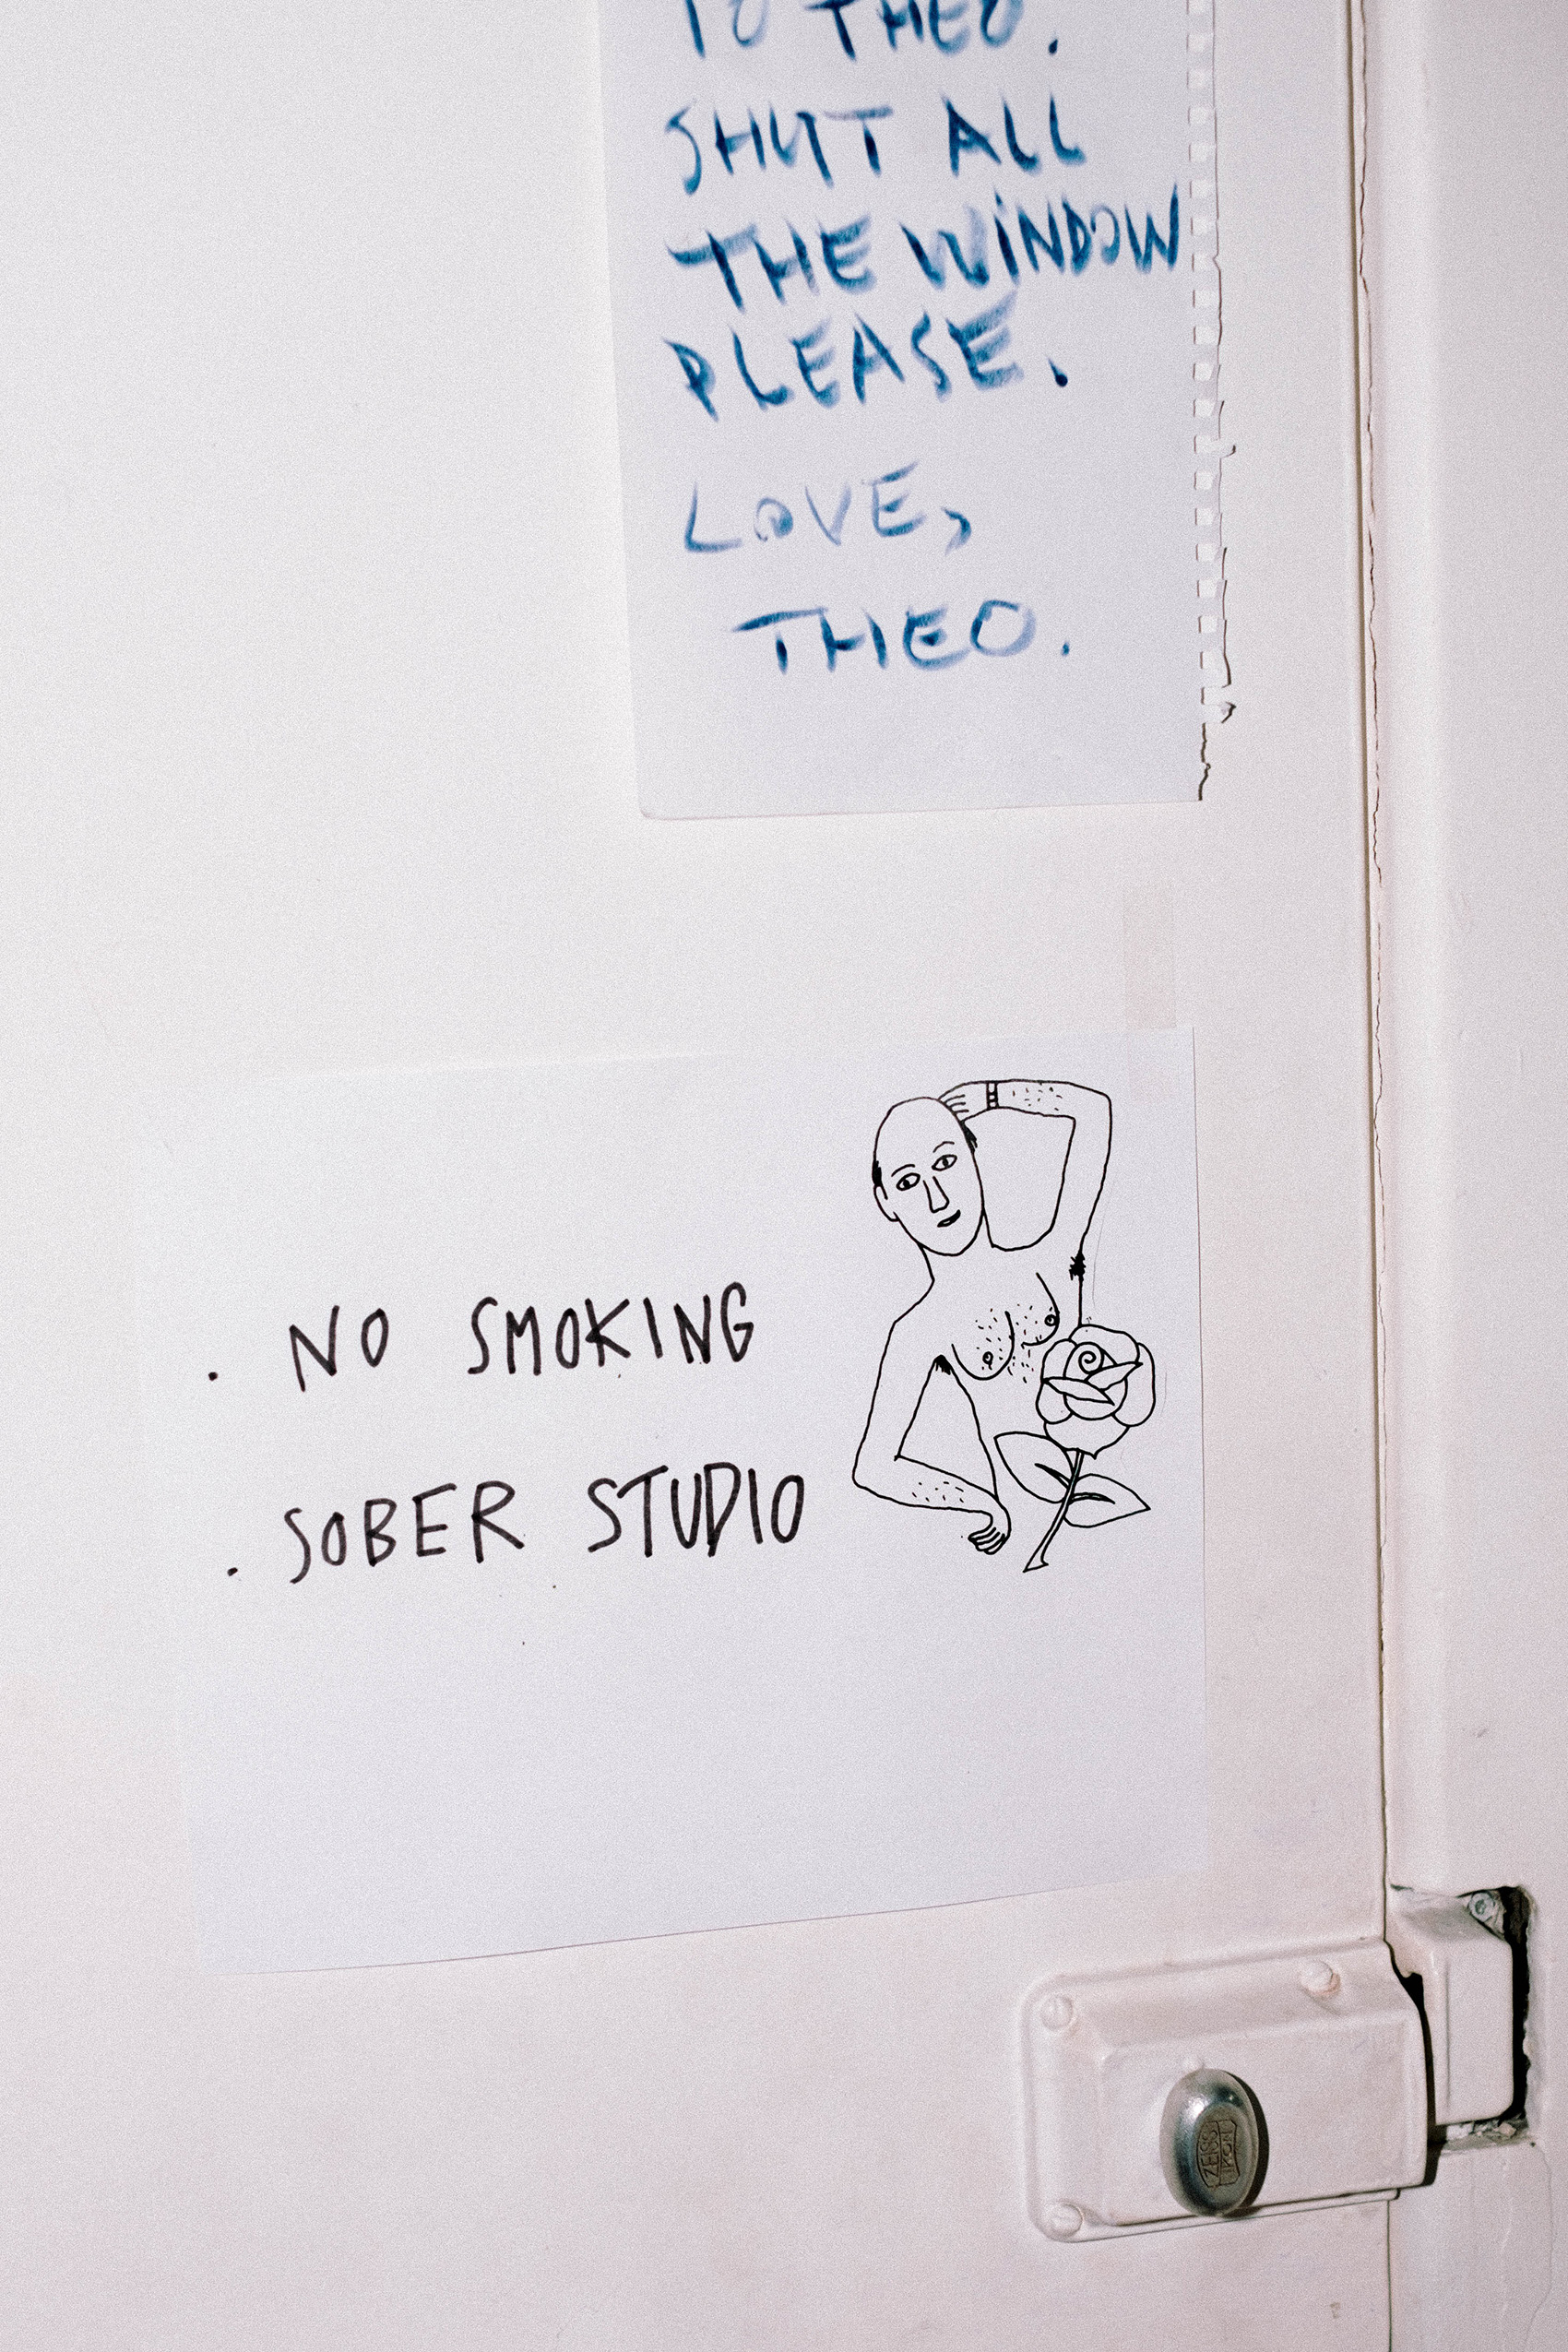 TO THEO.
SHUT ALL
THE WINDOW
PLEASE.
LOVE,
THEO.
. NO SMOKING
. SOBER STUDIO
ZEISS
IKON